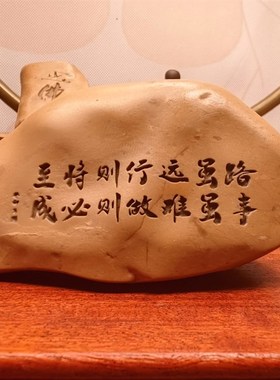 路虽远行则将至
事虽难做则必成
佛